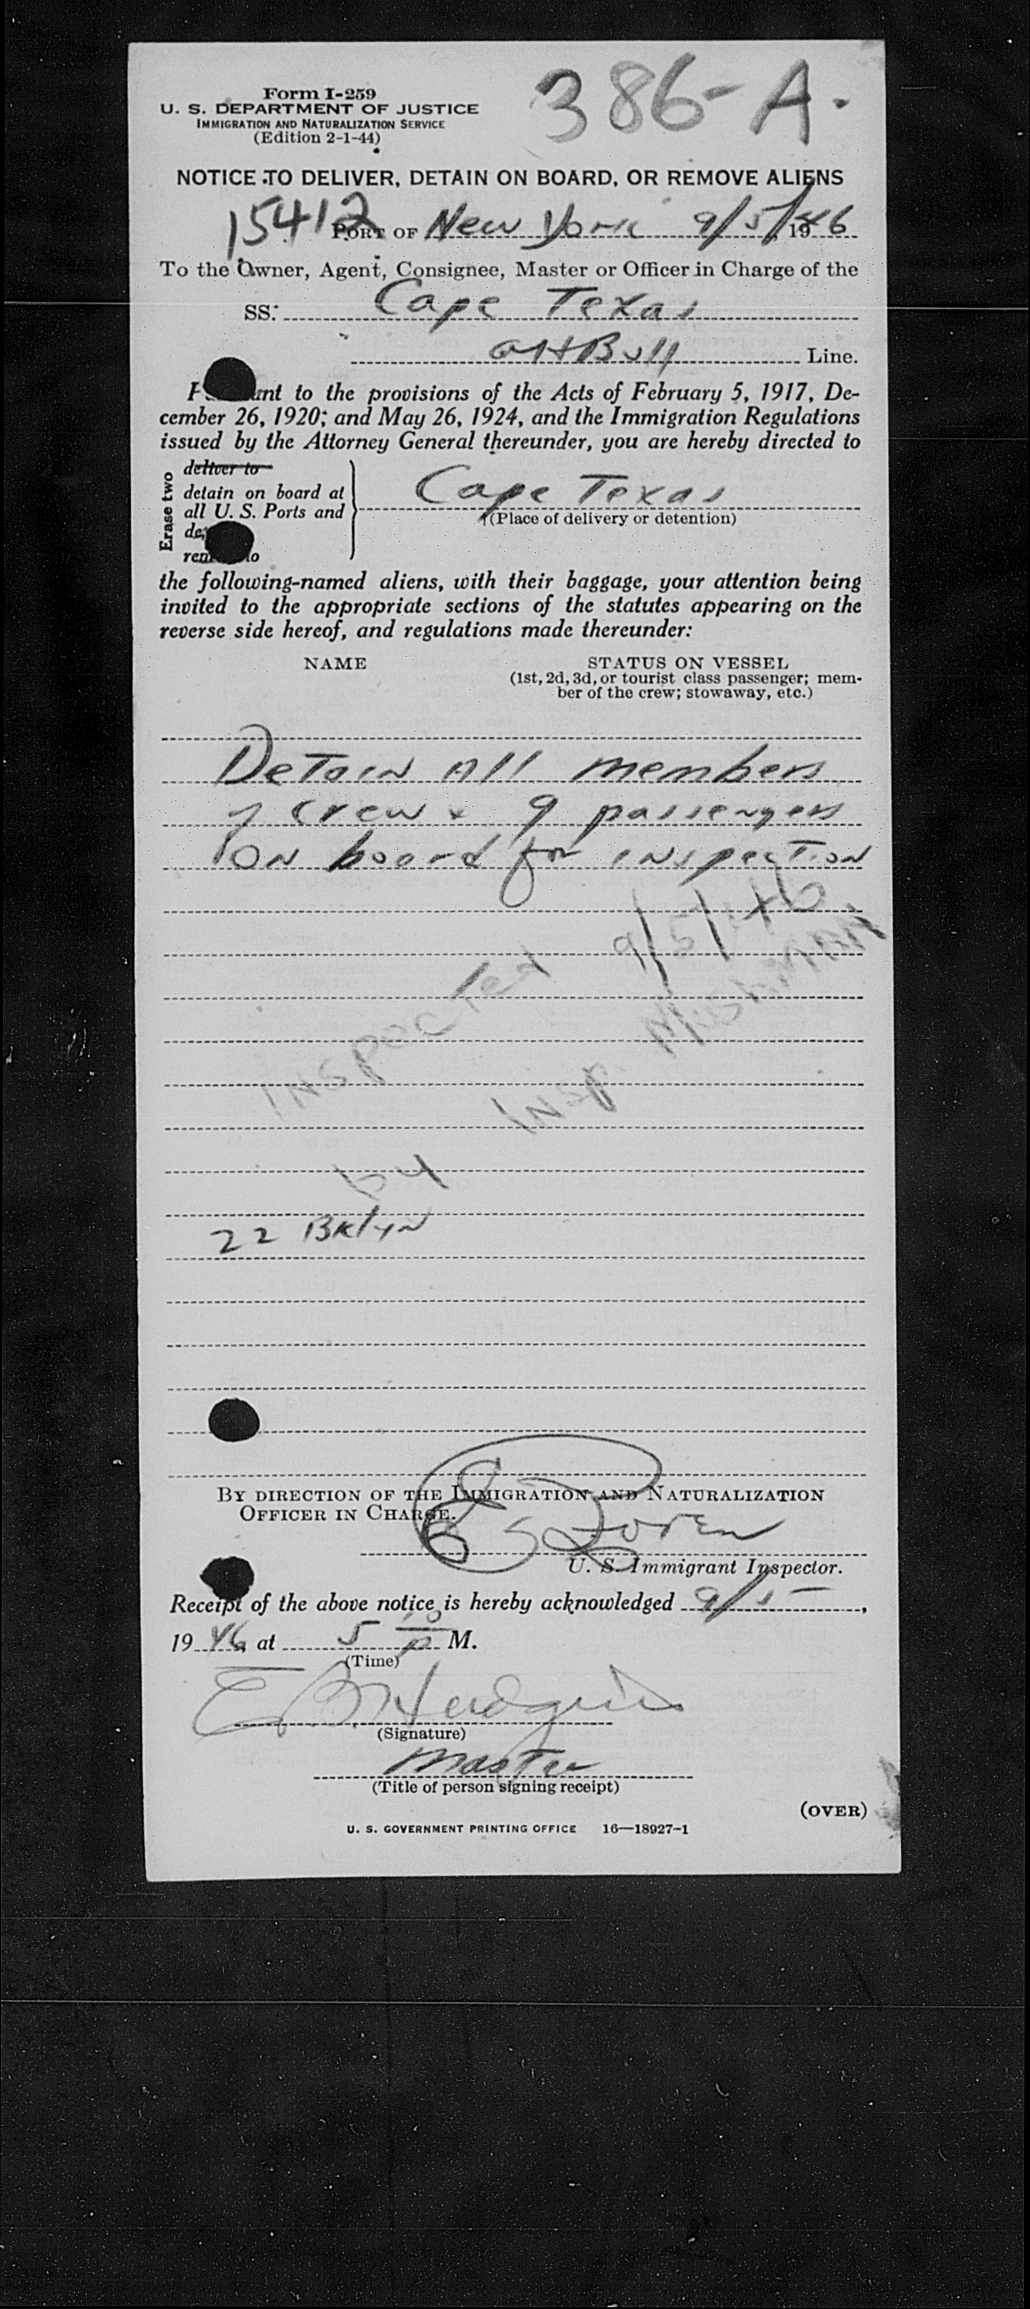 386-A.
Form I-259
U. S. DEPARTMENT OF JUSTICE
IMMIGRATION AND NATURALIZATION SERVICE
(Edition 2-1-44)
NOTICE TO DELIVER, DETAIN ON BOARD, OR REMOVE ALIENS
15412
PORT OF New York 9/5/, 1946
To the Owner, Agent, Consignee, Master or Officer in Charge of the
SS. Cape Texas
AH Bull Line.
to the provisions of the Acts of February 5, 1917, De-
cember 26, 1920; and May 26, 1924, and the Immigration Regulations
issued by the Attorney General thereunder, you are hereby directed to
Erase two
deliver to
detain on board at
all U. S. Ports and
Cape Texas
(Place of delivery or detention)
the following-named aliens, with their baggage, your attention being
invited to the appropriate sections of the statutes appearing on the
reverse side hereof, and regulations made thereunder:
NAME STATUS ON VESSEL
(1st, 2d, 3d, or tourist class passenger; mem-
ber of the crew; stowaway, etc.)
Detain All members
of crew & 9 passengers
on board for inspection
Inspected 9/5/46
by Insp.
22 Bklyn
BY DIRECTION OF THE IMMIGRATION AND NATURALIZATION
OFFICER IN CHARGE.
U. S. Immigrant Inspector.
Receipt of the above notice is hereby acknowledged 9/5,
19 46 at 5 P M.
(Time)
(Signature)
Master
(Title of person signing receipt)
(OVER)
U. S. GOVERNMENT PRINTING OFFICE 16—18927-1